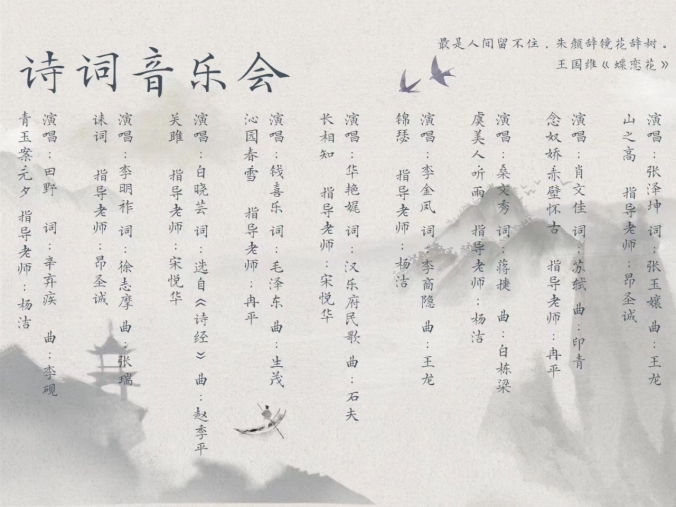 诗词音乐会
最是人间留不住,朱颜辞镜花辞树.
王国维《蝶恋花》
山之高 指导老师:昂圣诚
演唱:张泽坤 词:张玉孃 曲:王龙
念奴娇赤壁怀古 指导老师:冉平
演唱:肖文佳 词:苏轼 曲:印青
虞美人听雨 指导老师:杨洁
演唱:桑文秀 词:蒋捷 曲:白栋梁
锦瑟 指导老师:杨洁
演唱:李金凤 词:李商隐 曲:王龙
长相知 指导老师:宋悦华
演唱:华艳娓 词:汉乐府民歌 曲:石夫
沁园春雪 指导老师:冉平
演唱:钱喜乐 词:毛泽东 曲:生茂
关雎 指导老师:宋悦华
演唱:白晓芸 词:选自《诗经》 曲:赵季平
诔词 指导老师:昂圣诚
演唱:李明祚 词:徐志摩 曲:张瑞
青玉案元夕 指导老师:杨洁
演唱:田野 词:辛弃疾 曲:李砚